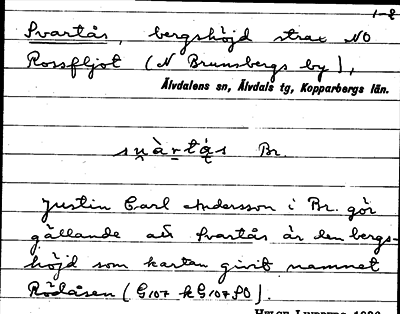 1-2
Svartås, bergshöjd strax NO
Rossfljot (N Brunsbergs by),
Älvdalens sn, Älvdals tg, Kopparbergs län.
Br.
Justin Carl Andersson i Br. gör
gällande att Svartås är den bergs-
höjd som kartan givit namnet
Rödåsen (G107 k G107 SO).